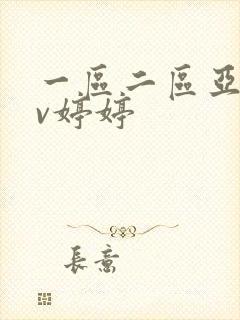 一區二區亞
v婷婷
長意